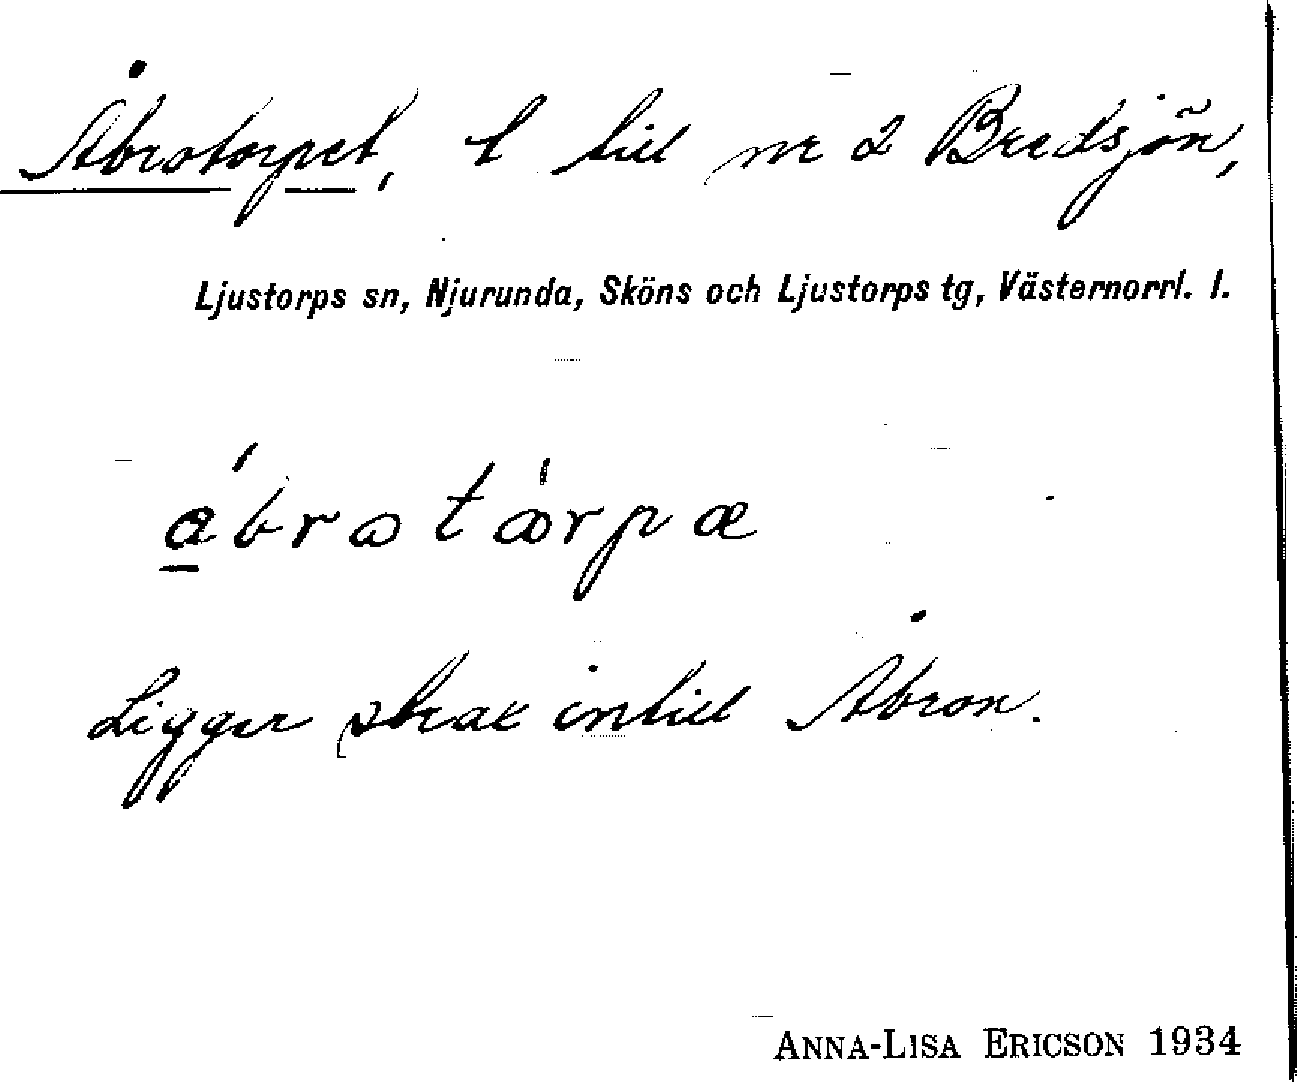 Åbrotorpet, t till nr 2 Bredsjön,
Ljustorps sn, Njurunda, Sköns och Ljustorps tg, Västernorrl. l.
Ligger strax intill Åbron.
ANNA-LISA ERICSON 1934